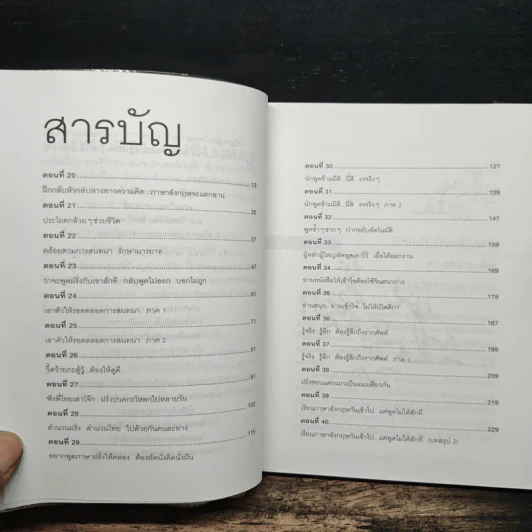 สารบัญ
ตอนที่ 20 13
ฝึกกลับหัวกลับหางทางความคิด ภาษาอังกฤษจะแตกฉาน
ตอนที่ 21 25
ประโยคกล้วยๆช่วยชีวิต
ตอนที่ 22 37
คล้อยตามการสนทนา รักษามารยาท
ตอนที่ 23 47
ว่าจะพูดฝรั่งกับเขาสักที กลับพูดไม่ออก บอกไม่ถูก
ตอนที่ 24 61
เอาตัวให้รอดตลอดการสนทนา ภาค 1
ตอนที่ 25 71
เอาตัวให้รอดตลอดการสนทนา ภาค 2
ตอนที่ 26
รี้คว้ายกะตู้รู้ ต้องให้ดูดี
ตอนที่ 27
ฟังพี่ไทยเล่าโจ๊ก ฝรั่งปวดกะโหลกไปหลายวัน
ตอนที่ 28 103
สำนวนฝรั่ง สำนวนไทย ไปด้วยกันคนละทาง
ตอนที่ 29 115
อยากพูดภาษาฝรั่งให้คล่อง ต้องหัดนั่งคิดนั่งฝัน
ตอนที่ 30 127
นักพูดข้ามมิติ นี่สิ งงจริงๆ
ตอนที่ 31 139
นักพูดข้ามมิติ นี่สิ งงจริงๆ ภาค 2
ตอนที่ 32 147
พูดซ้ำๆซากๆ ปากขยับอัตโนมัติ
ตอนที่ 33 159
ผู้หลักผู้ใหญ่หัดพูดเอาไว้ เผื่อได้ออกงาน
ตอนที่ 34 169
อ่านหนังสือให้เข้าใจต้องใช้จินตนาการ
ตอนที่ 35 179
อ่านสนุก อ่านเข้าใจ ไม่ให้เปิดดิกฯ
ตอนที่ 36 187
รู้จริง รู้ลึก ต้องรู้สึกถึงรากศัพท์
ตอนที่ 37 199
รู้จริง รู้ลึก ต้องรู้สึกถึงรากศัพท์ ภาค 2
ตอนที่ 38 209
ฝรั่งชอบแดกแถวเป็นแนวเดียวกัน
ตอนที่ 39 219
เรียนภาษาอังกฤษกันเข้าไป แต่พูดไม่ได้สักที
ตอนที่ 40 229
เรียนภาษาอังกฤษกันเข้าไป แต่พูดไม่ได้สักที (บทสรุป 2)